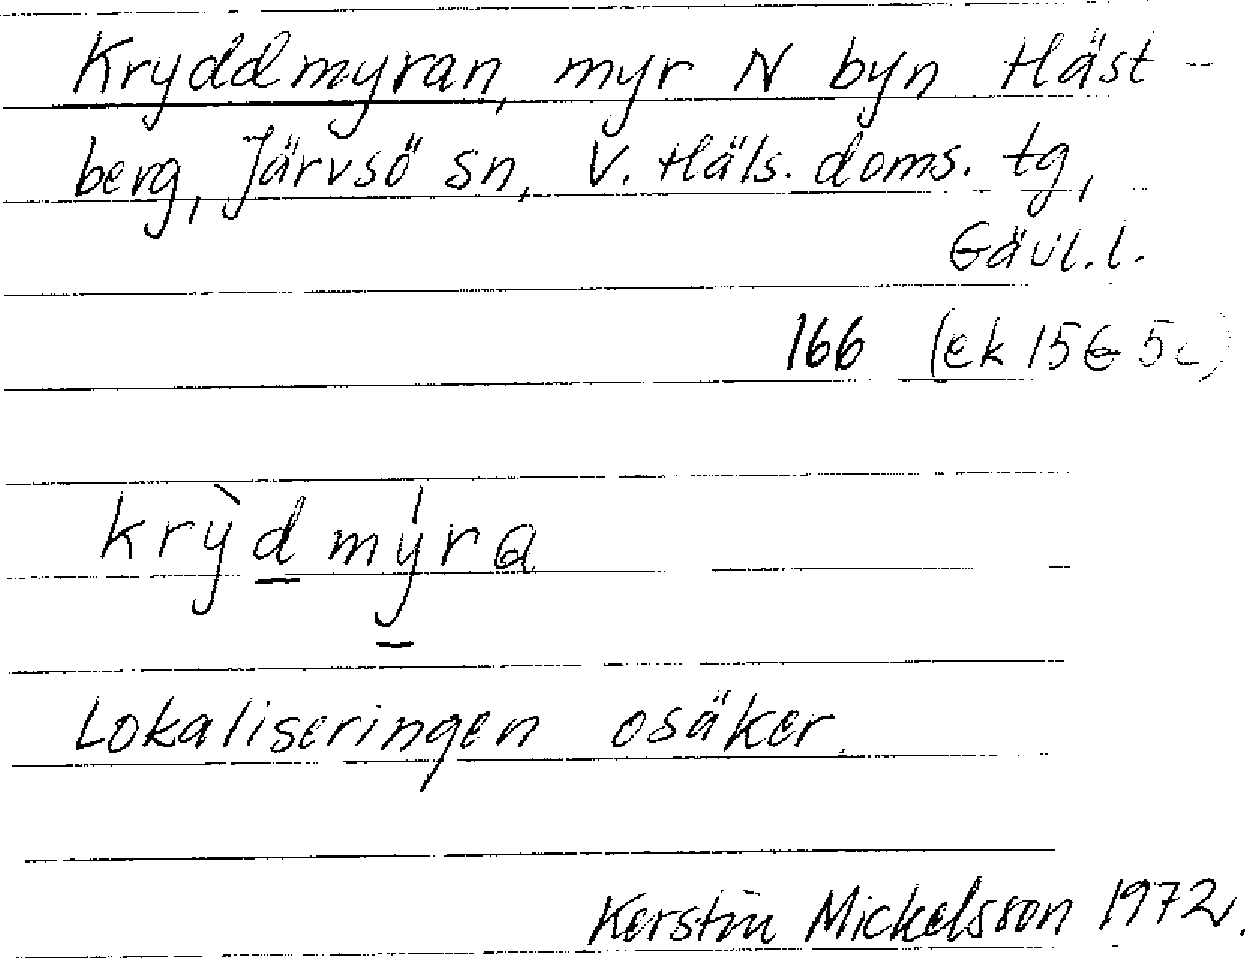 Kryddmyran, myr N byn Häst-
berg, Järvsö sn, V. Häls. doms. tg,
Gävl. l.
166 (ek 15G 5c)
krỳdmýra
Lokaliseringen osäker.
Kerstin Mickelsson 1972.